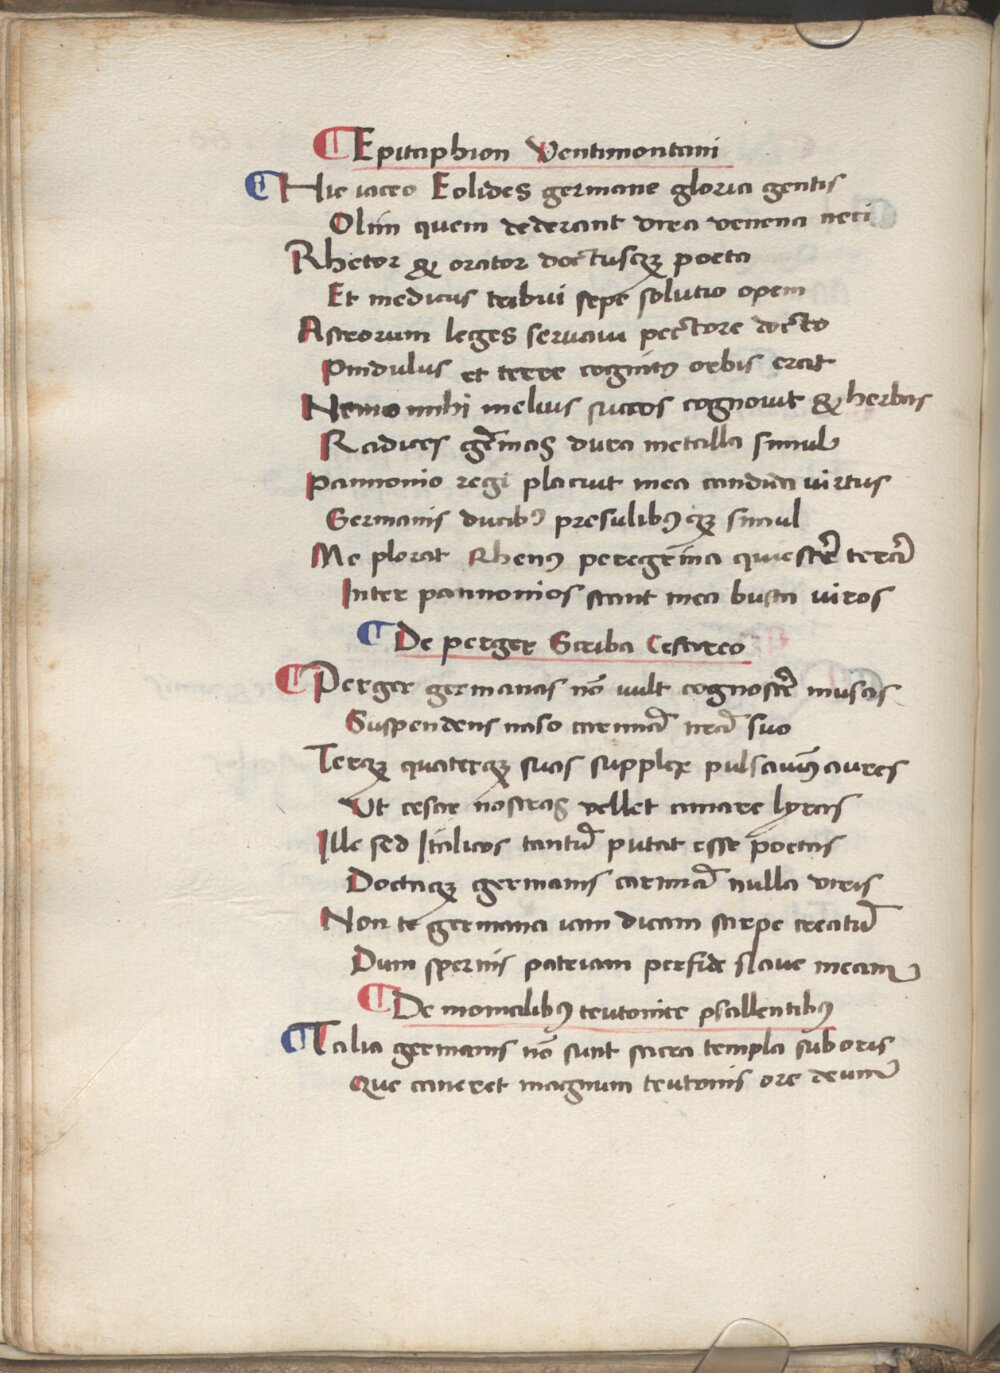 Epitaphion Ventimontani
Hic iaceo Eolides germane gloria gentis
Olim quem dederant dira venena neci
Rhetor & orator doctusqꝫ poeta
Et medicus tribui sepe solutio opem
Astrorum leges servavi pectore docto
Pindulus et terre cognitꝰ orbis erat
Nemo mihi melius succos cognovit & herbas
Radices gēmas dura metalla simul
Pannonio regi placuit mea candida virtus
Germanis ducibꝰ presulibꝰqꝫ simul
Me plorat Rhenꝰ peregrina quiescere terra
Inter pannonios stant mea busta viros
De perger Scriba Cesareo
Perger germanas nō vult cognoscere musas
Suspendens naso carmina nra suo
Terqꝫ quaterqꝫ suas supplex pulsavimꝰ aures
Ut cesar nostras vellet amare lyras
Ille sed Italicos tantū putat esse poetas
Doctaqꝫ germanis carmina nulla viris
Non te germana iam dicam stirpe creatū
Dum spernis patriam perfide slave meam
De monialibꝰ teutonice psallentibꝰ
Talia germanis nō sunt sacra templa sub oris
Que caneret magnum teutonis ore deum